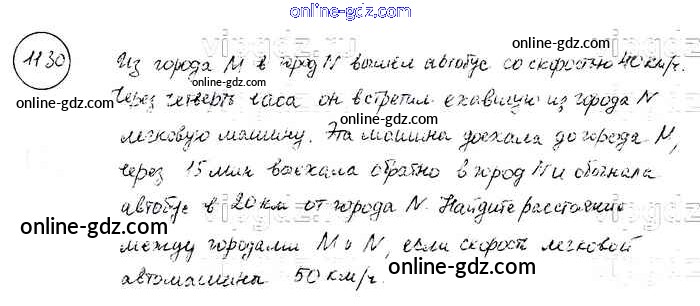 online-gdz.com
1130
Из города М в город N вышел автобус со скоростью 40 км/ч.
online-gdz.com
Через четверть часа он встретил ехавшую из города N
online-gdz.com
легковую машину. Эта машина доехала до города М,
через 15 мин выехала обратно в город N и обогнала
online-gdz.com
автобус в 20 км от города N. Найдите расстояние
online-gdz.com
между городами М и N, если скорость легковой
автомашины 50 км/ч.
online-gdz.com